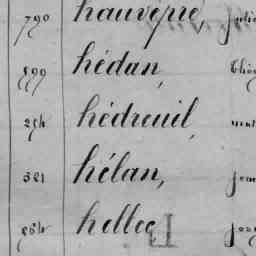 790 hauvepre,
899 hédan,
254 hédreuil,
321 hélan,
264 hellec,